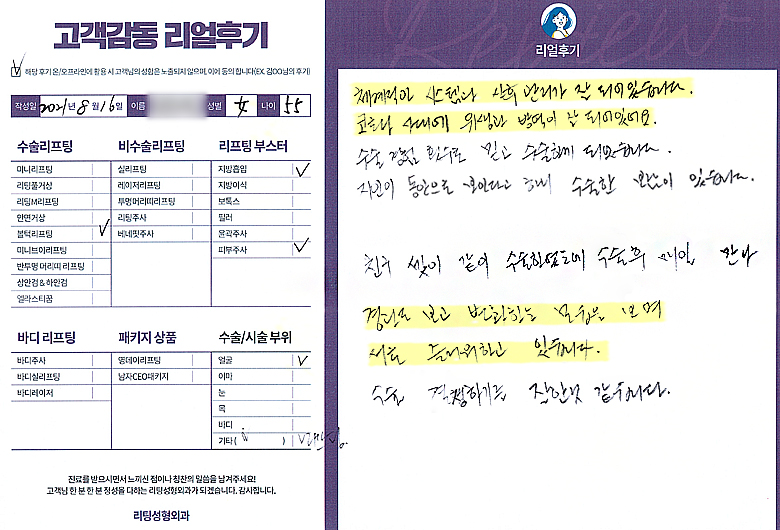 고객감동 리얼후기
해당 후기 온/오프라인에 활용 시 고객님의 성함은 노출되지 않으며, 이에 동의 합니다(EX. 김OO님의 후기)
작성일 2021년 8월 16일 이름 성별 女 나이 55
수술리프팅
미니리프팅
리팅풀거상
리팅M리프팅
안면거상
볼턱리프팅
미니브이리프팅
반투명 머리띠 리프팅
상안검 & 하안검
엘라스티꿈
비수술리프팅
실리프팅
레이저리프팅
투명머리띠리프팅
리팅주사
베네핏주사
리프팅 부스터
지방흡입
지방이식
보톡스
필러
윤곽주사
피부주사
바디 리프팅
바디주사
바디실리프팅
바디레이저
패키지 상품
영데이리프팅
남자CEO패키지
수술/시술 부위
얼굴
이마
눈
목
바디
기타( )
진료를 받으시면서 느끼신 점이나 칭찬의 말씀을 남겨주세요!
고객님 한 분 한 분 정성을 다하는 리팅성형외과가 되겠습니다. 감사합니다.
리팅성형외과
Review
리얼후기
체계적인 시스템과 사후 관리가 잘 되어있습니다.
코로나 시대에 위생과 방역이 잘 되어있어요.
수술 경험 횟수로 믿고 수술하게 되었습니다.
지인이 동안으로 보인다고 하니 수술한 보람이 있습니다.
친구 셋이 같이 수술하였는데 수술후 매일 만나
경과를 보고 변화하는 모습을 보며
서로 즐거워하고 있습니다.
수술 결정하기를 잘한것 같습니다.